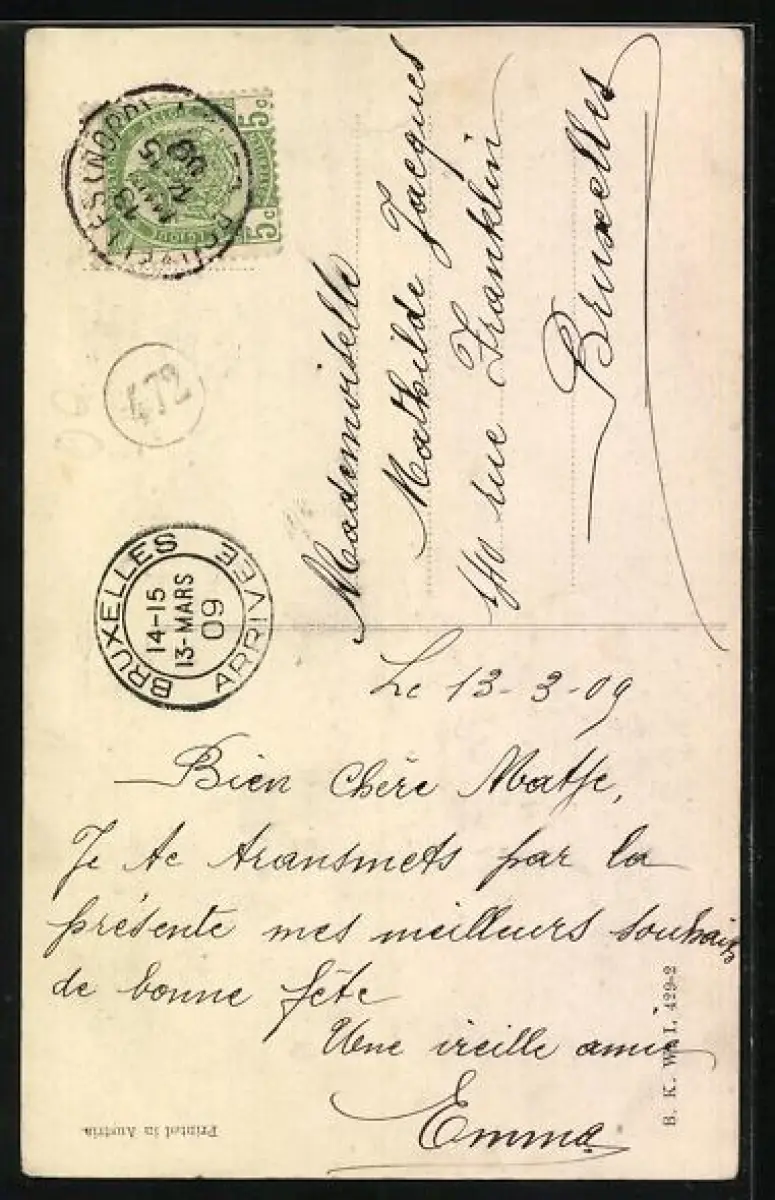 5c 5c
(NORD)
13
15
09
472
BRUXELLES
14-15
13-MARS
09
ARRIVEE
Mademoiselle
Mathilde Jacques
rue Franklin
Bruxelles
Le 13-3-09
Bien chère
Je te transmets par la
présente mes meilleurs souhaits
de bonne fête
Une vieille amie
Emma
B. K. W. I. 429-2
Printed in Austria.